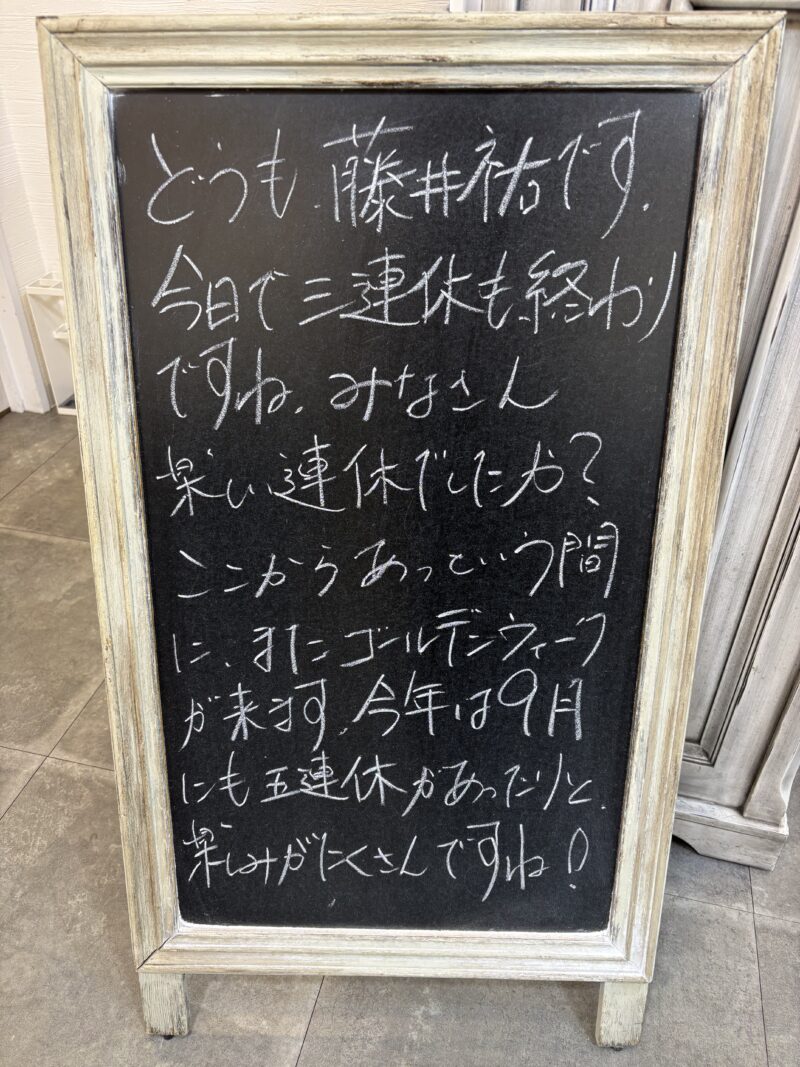 どうも、藤井祐です。
今日で三連休も、終わり
ですね。みなさん
楽しい連休でしたか？
ここからあっという間
に、またゴールデンウィーク
が来ます。今年は9月
にも五連休があったりと、
楽しみがたくさんですね！